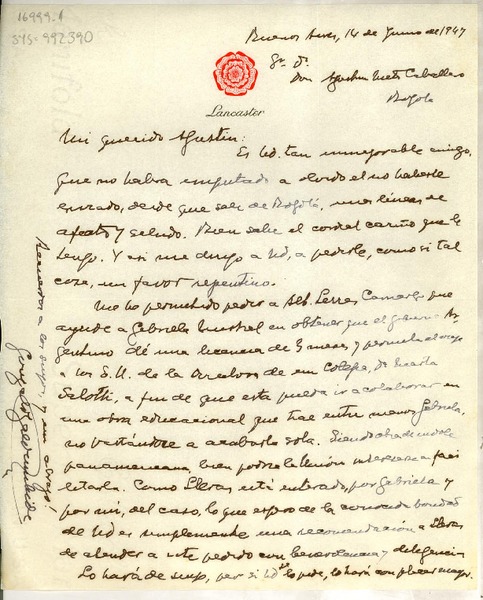 16999.1
SYS-992390
Buenos Aires, 14 de Junio de 1947
Sr. Dr.
Don Agustín Nieto Caballero
Bogotá
Lancaster
Mi querido Agustín:
Es Ud. tan inmejorable amigo,
que no habrá imputado a olvido el no haberle
enviado, desde que salí de Bogotá, unas líneas de
afecto y saludo. Bien sabe el cordial cariño que le
tengo. Y así me dirijo a Ud, a pedirle, como si tal
cosa, un favor repentino.
Me he permitido pedir a Alb. Lleras Camargo que
ayude a Gabriela Mistral en obtener que el gobierno Ar-
gentino dé una licencia de 3 meses, y permita el viaje
a los E.U. de la directora de un Colegio, Da
Salotti, a fin de que esta pueda ir a colaborar en
una obra educacional que trae entre manos Gabriela,
no bastándose a acabarla sola. Siendo obra de índole
panamericana, bien podría la Unión interesarse a faci
litarla. Como Lleras está enterado, por Gabriela y
por mí, del caso, lo que espero de la conocida bondad
de Ud es simplemente una recomendación a Lleras
de atender a este pedido con benevolencia y diligencia
Lo hará de suyo, pero si Ud se lo pide, lo hará con placer mayor.
Recuerdos a los suyos, y un abrazo!